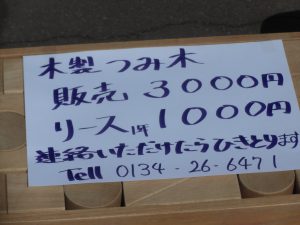 木製つみ木
販売 3000円
リース1年1000円
連絡いただけたらひきとります
Tell 0134-26-6471